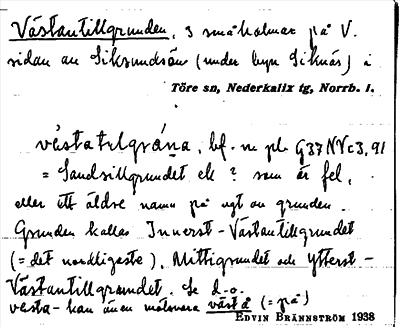 Västantillgrunden, 3 småholmar på V.
sidan av Siksundsön (under byn Siknäs) i
Töre sn, Nederkalix tg, Norrb. l.
västatılgrána, bf. n. pl. G37NVc3,91
= Sandsillgrundet el. ? som är fel,
eller ett äldre namn på ngt av grunden.
Grunden kallas Innerst-Västantillgrundet
(= det nordligaste), Mittigrundet och Ytterst-
Västantillgrundet. Se d.o.
västa- kan även motsvara väst d (= på)
EDVIN BRÄNNSTRÖM 1938